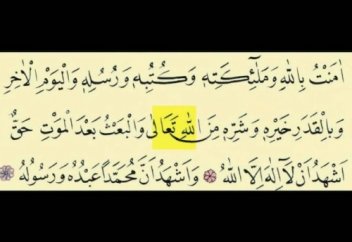 اٰمَنْتُ بِاللّٰهِ وَمَلٰٓئِكَتِه۪ وَكُتُبِه۪ وَرُسُلِه۪ وَالْيَوْمِ الْاٰخِرِ
وَبِالْقَدَرِ خَيْرِه۪ وَشَرِّه۪ مِنَ اللّٰهِ تَعَالٰى وَالْبَعْثُ بَعْدَ الْمَوْتِ حَقٌّ
اَشْهَدُ اَنْ لَٓا اِلٰهَ اِلَّا اللّٰهُ وَاَشْهَدُ اَنَّ مُحَمَّدًا عَبْدُهُ وَرَسُولُهُ